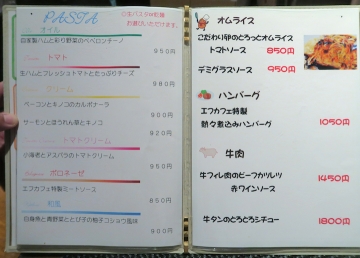 PASTA
◎生パスタor乾麺
お選びいただけます。
オイル
自家製ハムと彩り野菜のペペロンチーノ
950円
トマト
生ハムとフレッシュトマトとたっぷりチーズ
980円
クリーム
ベーコンとキノコのカルボナーラ
900円
サーモンとほうれん草とキノコ
920円
トマトクリーム
小海老とアスパラのトマトクリーム
950円
ボロネーゼ
エフカフェ特製ミートソース
850円
和風
白身魚と青野菜ととび子の柚子コショウ風味
900円
オムライス
こだわり卵のとろっとオムライス
トマトソース 850円
デミグラスソース 950円
ハンバーグ
エフカフェ特製
熱々煮込みハンバーグ 1050円
牛肉
牛フィレ肉のビーフカツルツ 1450円
赤ワインソース
牛タンのとろとろシチュー 1800円